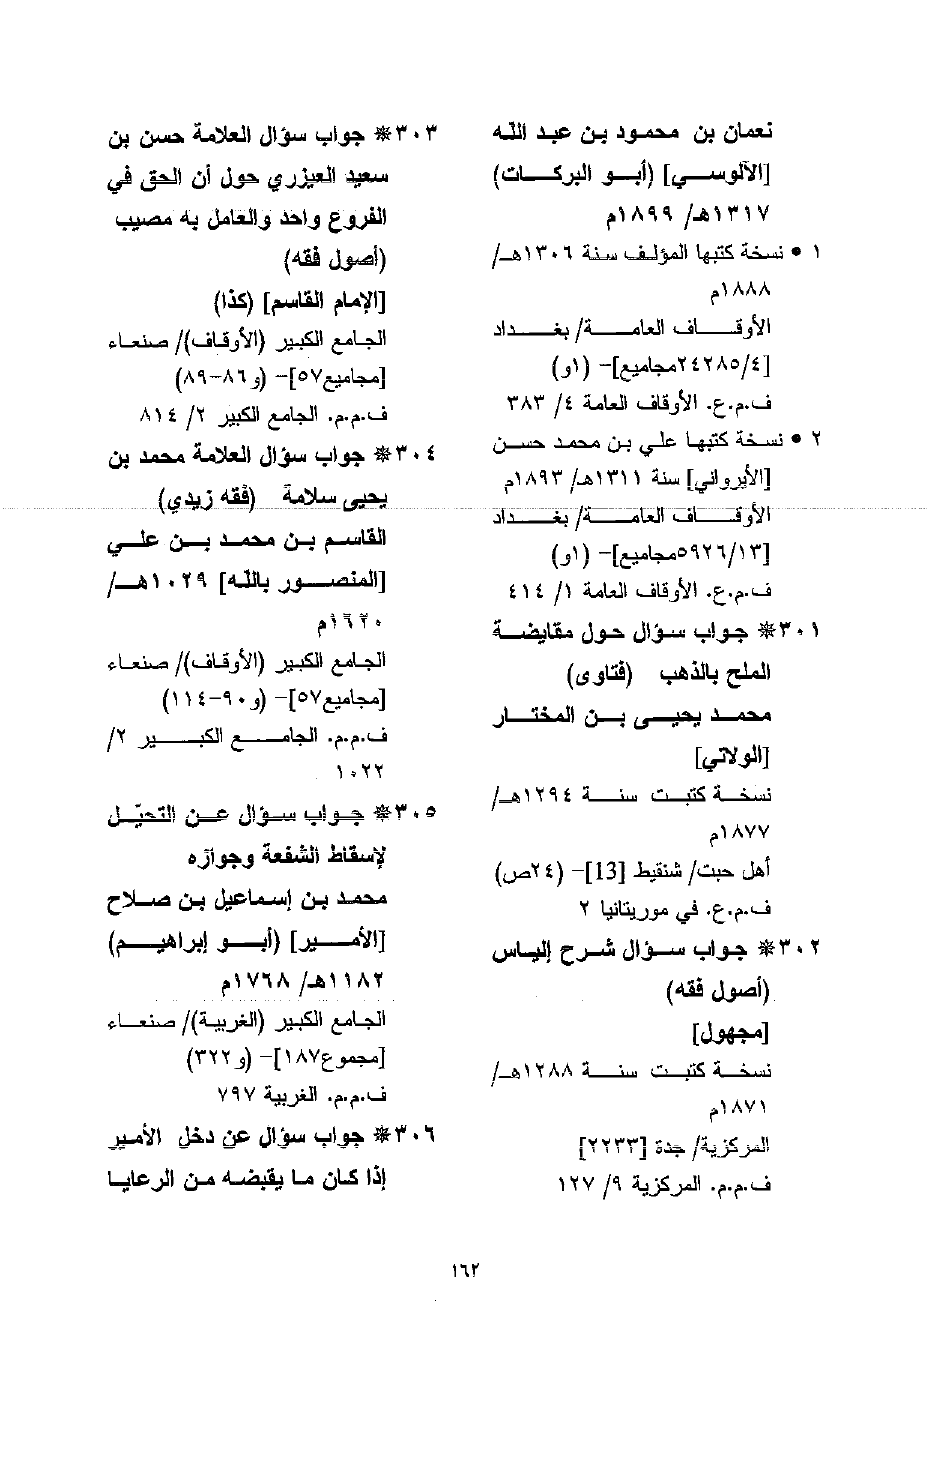 نعمان بن محمود بن عبد الله
[الآلوسي] (أبو البركات)
١٣١٧هـ/ ١٨٩٩م
١ • نسخة كتبها المؤلف سنة ١٣٠٦هـ/
١٨٨٨م
الأوقاف العامة/ بغداد
[٢٤٢٨٥/٤مجاميع]- (١و)
ف.م.ع. الأوقاف العامة ٤/ ٣٨٣
٢ • نسخة كتبها علي بن محمد حسن
[الأيرواني] سنة ١٣١١هـ/ ١٨٩٣م
الأوقاف العامة/ بغداد
[٥٩٢٦/١٣مجاميع]- (١و)
ف.م.ع. الأوقاف العامة ١/ ٤١٤
٣٠١* جواب سؤال حول مقايضة
الملح بالذهب (فتاوى)
محمد يحيى بن المختار
[الولاتي]
نسخة كتبت سنة ١٢٩٤هـ/
١٨٧٧م
أهل حبت/ شنقيط [13]- (٢٤ص)
ف.م.ع. في موريتانيا ٢
٣٠٢* جواب سؤال شرح إلياس
(أصول فقه)
[مجهول]
نسخة كتبت سنة ١٢٨٨هـ/
١٨٧١م
المركزية/ جدة [٢٢٣٣]
ف.م.م. المركزية ٩/ ١٢٧
٣٠٣* جواب سؤال العلامة حسن بن
سعيد العيزري حول أن الحق في
الفروع واحد والعامل به مصيب
(أصول فقه)
[الإمام القاسم] (كذا)
الجامع الكبير (الأوقاف)/ صنعاء
[مجاميع٥٧]- (و٨٦-٨٩)
ف.م.م. الجامع الكبير ٢/ ٨١٤
٣٠٤* جواب سؤال العلامة محمد بن
يحيى سلامة (فقه زيدي)
القاسم بن محمد بن علي
[المنصور بالله] ١٠٢٩هـ/
١٦٢٠م
الجامع الكبير (الأوقاف)/ صنعاء
[مجاميع٥٧]- (و٩٠-١١٤)
ف.م.م. الجامع الكبير ٢/
١٠٢٢
٣٠٥* جواب سؤال عن التحيّل
لإسقاط الشفعة وجوازه
محمد بن إسماعيل بن صلاح
[الأمير] (أبو إبراهيم)
١١٨٢هـ/ ١٧٦٨م
الجامع الكبير (الغربية)/ صنعاء
[مجموع١٨٧]- (و٣٢٢)
ف.م.م. الغربية ٧٩٧
٣٠٦* جواب سؤال عن دخل الأمير
إذا كان ما يقبضه من الرعايا
١٦٢